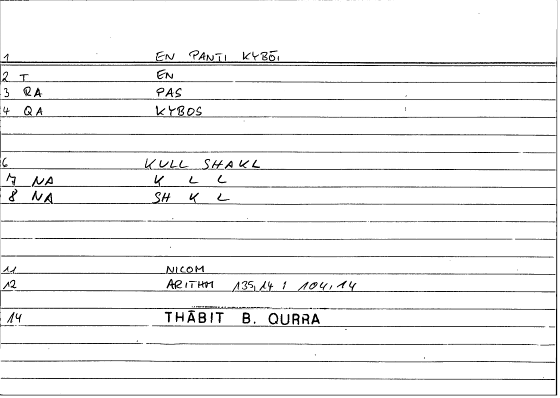 1 EN PANTI KYBŌI
2 T EN
3 RA PAS
4 QA KYBOS
6 KULL SHAKL
7 NA K L L
8 NA SH K L
11 NICOM
12 ARITHM 135,14 ; 104,14
14 THĀBIT B. QURRA